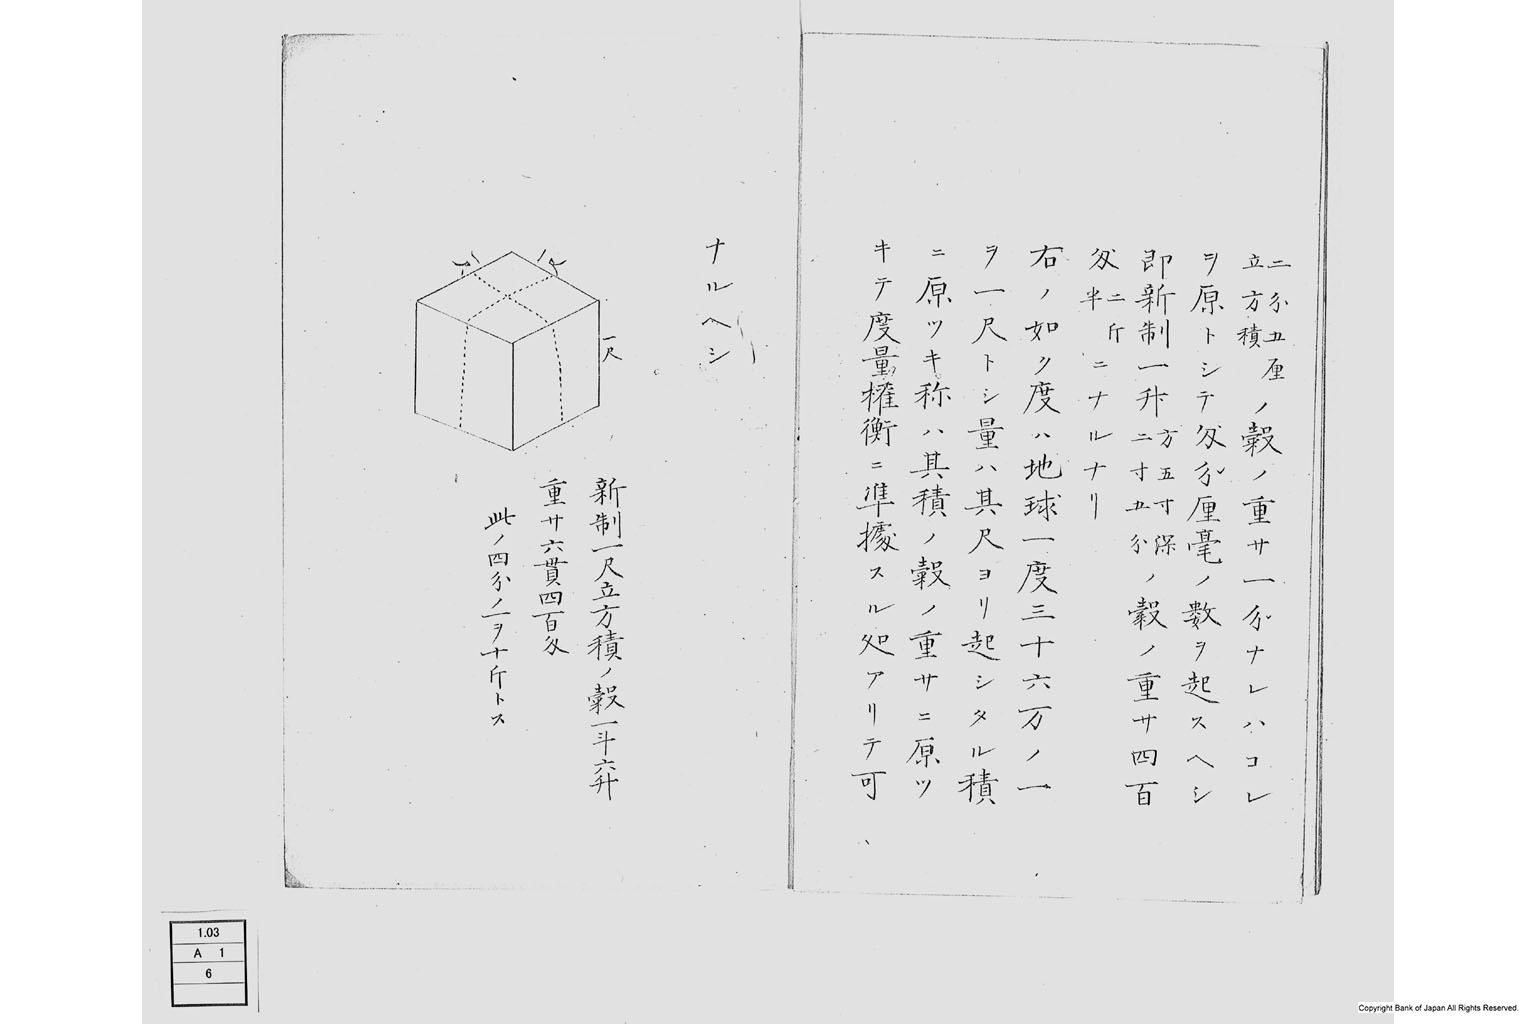 二分五厘立方積ノ穀ノ重サ一分ナレハコレ
ヲ原トシテ匁分厘毫ノ数ヲ起スヘシ
即新制一升方五寸深二寸五分ノ穀ノ重サ四百
匁二斤半ニナルナリ
右ノ如ク度ハ地球一度三十六万ノ一
ヲ一尺トシ量ハ其尺ヨリ起シタル積
ニ原ツキ称ハ其積ノ穀ノ重サニ原ツ
キテ度量権衡ニ準據スル処アリテ可
ナルヘシ
一尺
新制一尺立方積ノ穀一斗六升
重サ六貫四百匁
此ノ四分ノ一ヲ十斤トス
1.03
A 1
6
Copyright Bank of Japan All Rights Reserved.